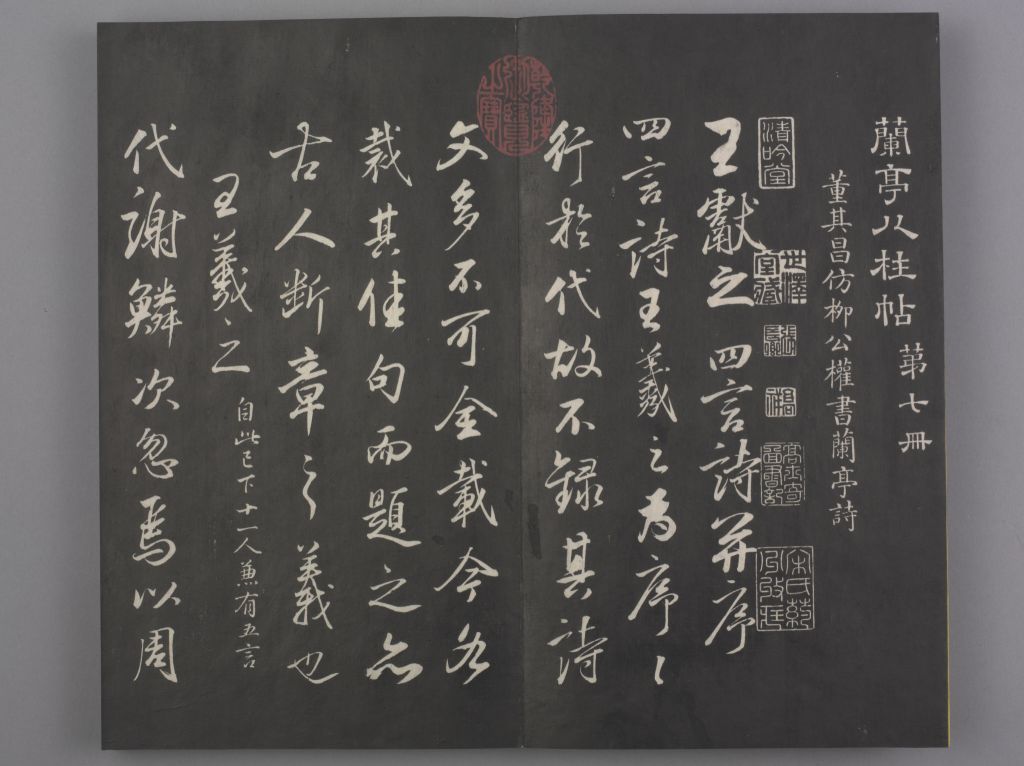 蘭亭八柱帖 第七冊
董其昌仿柳公權書蘭亭詩
清吟堂
王獻之四言詩并序
四言詩王羲之為序〻
行於代故不錄其詩
文多不可全載今各
裁其佳句而題之亦
古人斷章之義也
王羲之 自此已下十一人兼有五言
代謝鱗次忽焉以周